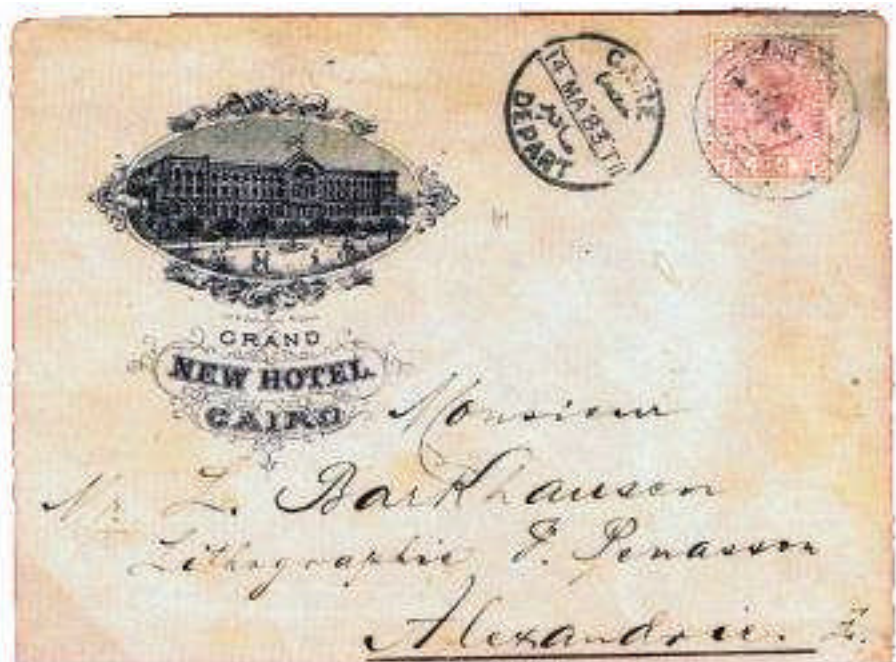 CAIRE
14 MA 83 T II
DEPART
GRAND
NEW HOTEL
CAIRO
Monsieur
L. Barkhausen
Lithographie P. Penasson
Alexandrie.